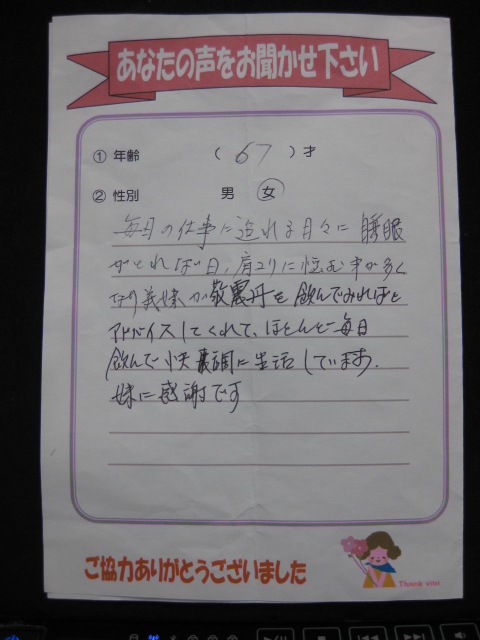 あなたの声をお聞かせ下さい
① 年齢 ( 67 ) 才
② 性別 男 女
毎日の仕事に追れる日々に 睡眠
がとれぬ日、肩コリに悩む事が多く
なり義妹が救震丹を飲んでみればと
アドバイスしてくれて、ほとんど毎日
飲んで快調に生活しています。
妹に感謝です
ご協力ありがとうございました
Thank you